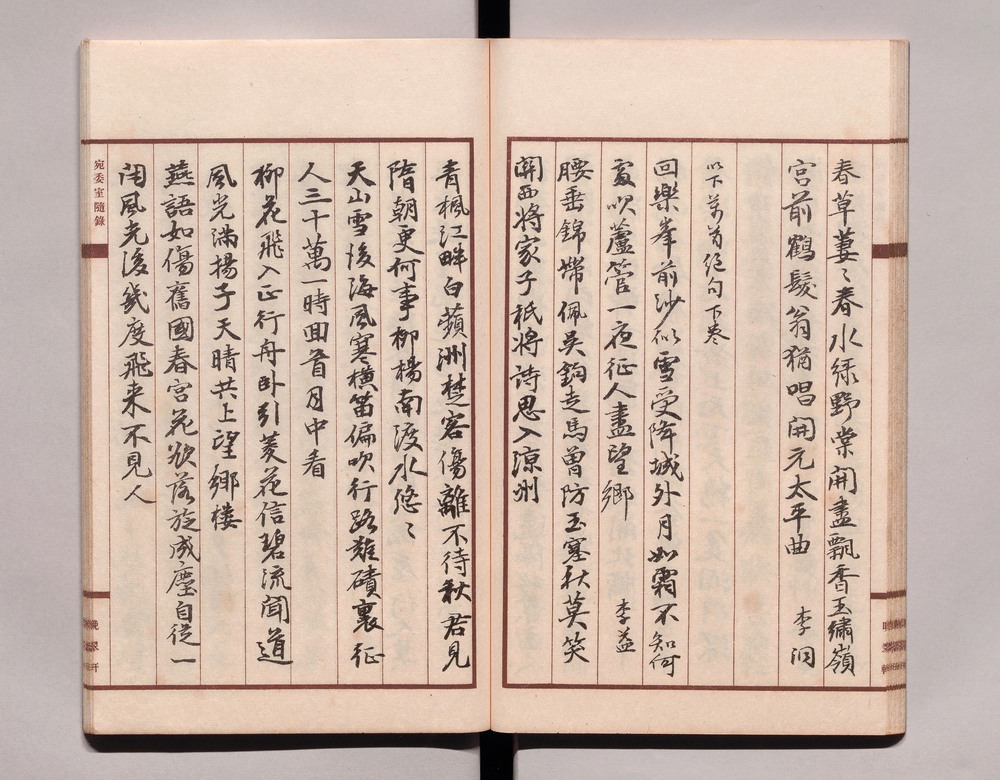 春草萋〻春水綠野棠開盡飄香玉繡嶺
宮前鶴髮翁猶唱開元太平曲 李洞
以下萬首絕句下卷
回樂峯前沙似雪受降城外月如霜不知何
處吹蘆管一夜征人盡望鄉 李益
腰垂錦帶佩吳鉤走馬曾防玉塞秋莫笑
關西將家子祇將詩思入涼州
青楓江畔白蘋洲楚客傷離不待秋君見
隋朝更何事柳楊南渡水悠〻
天山雪後海風寒橫笛偏吹行路難磧裏征
人三十萬一時回首月中看
柳花飛入正行舟卧引菱花信碧流聞道
風光滿揚子天晴共上望鄉樓
燕語如傷舊國春宮花欲落旋成塵自從一
閉風光後幾度飛来不見人
宛委室隨錄